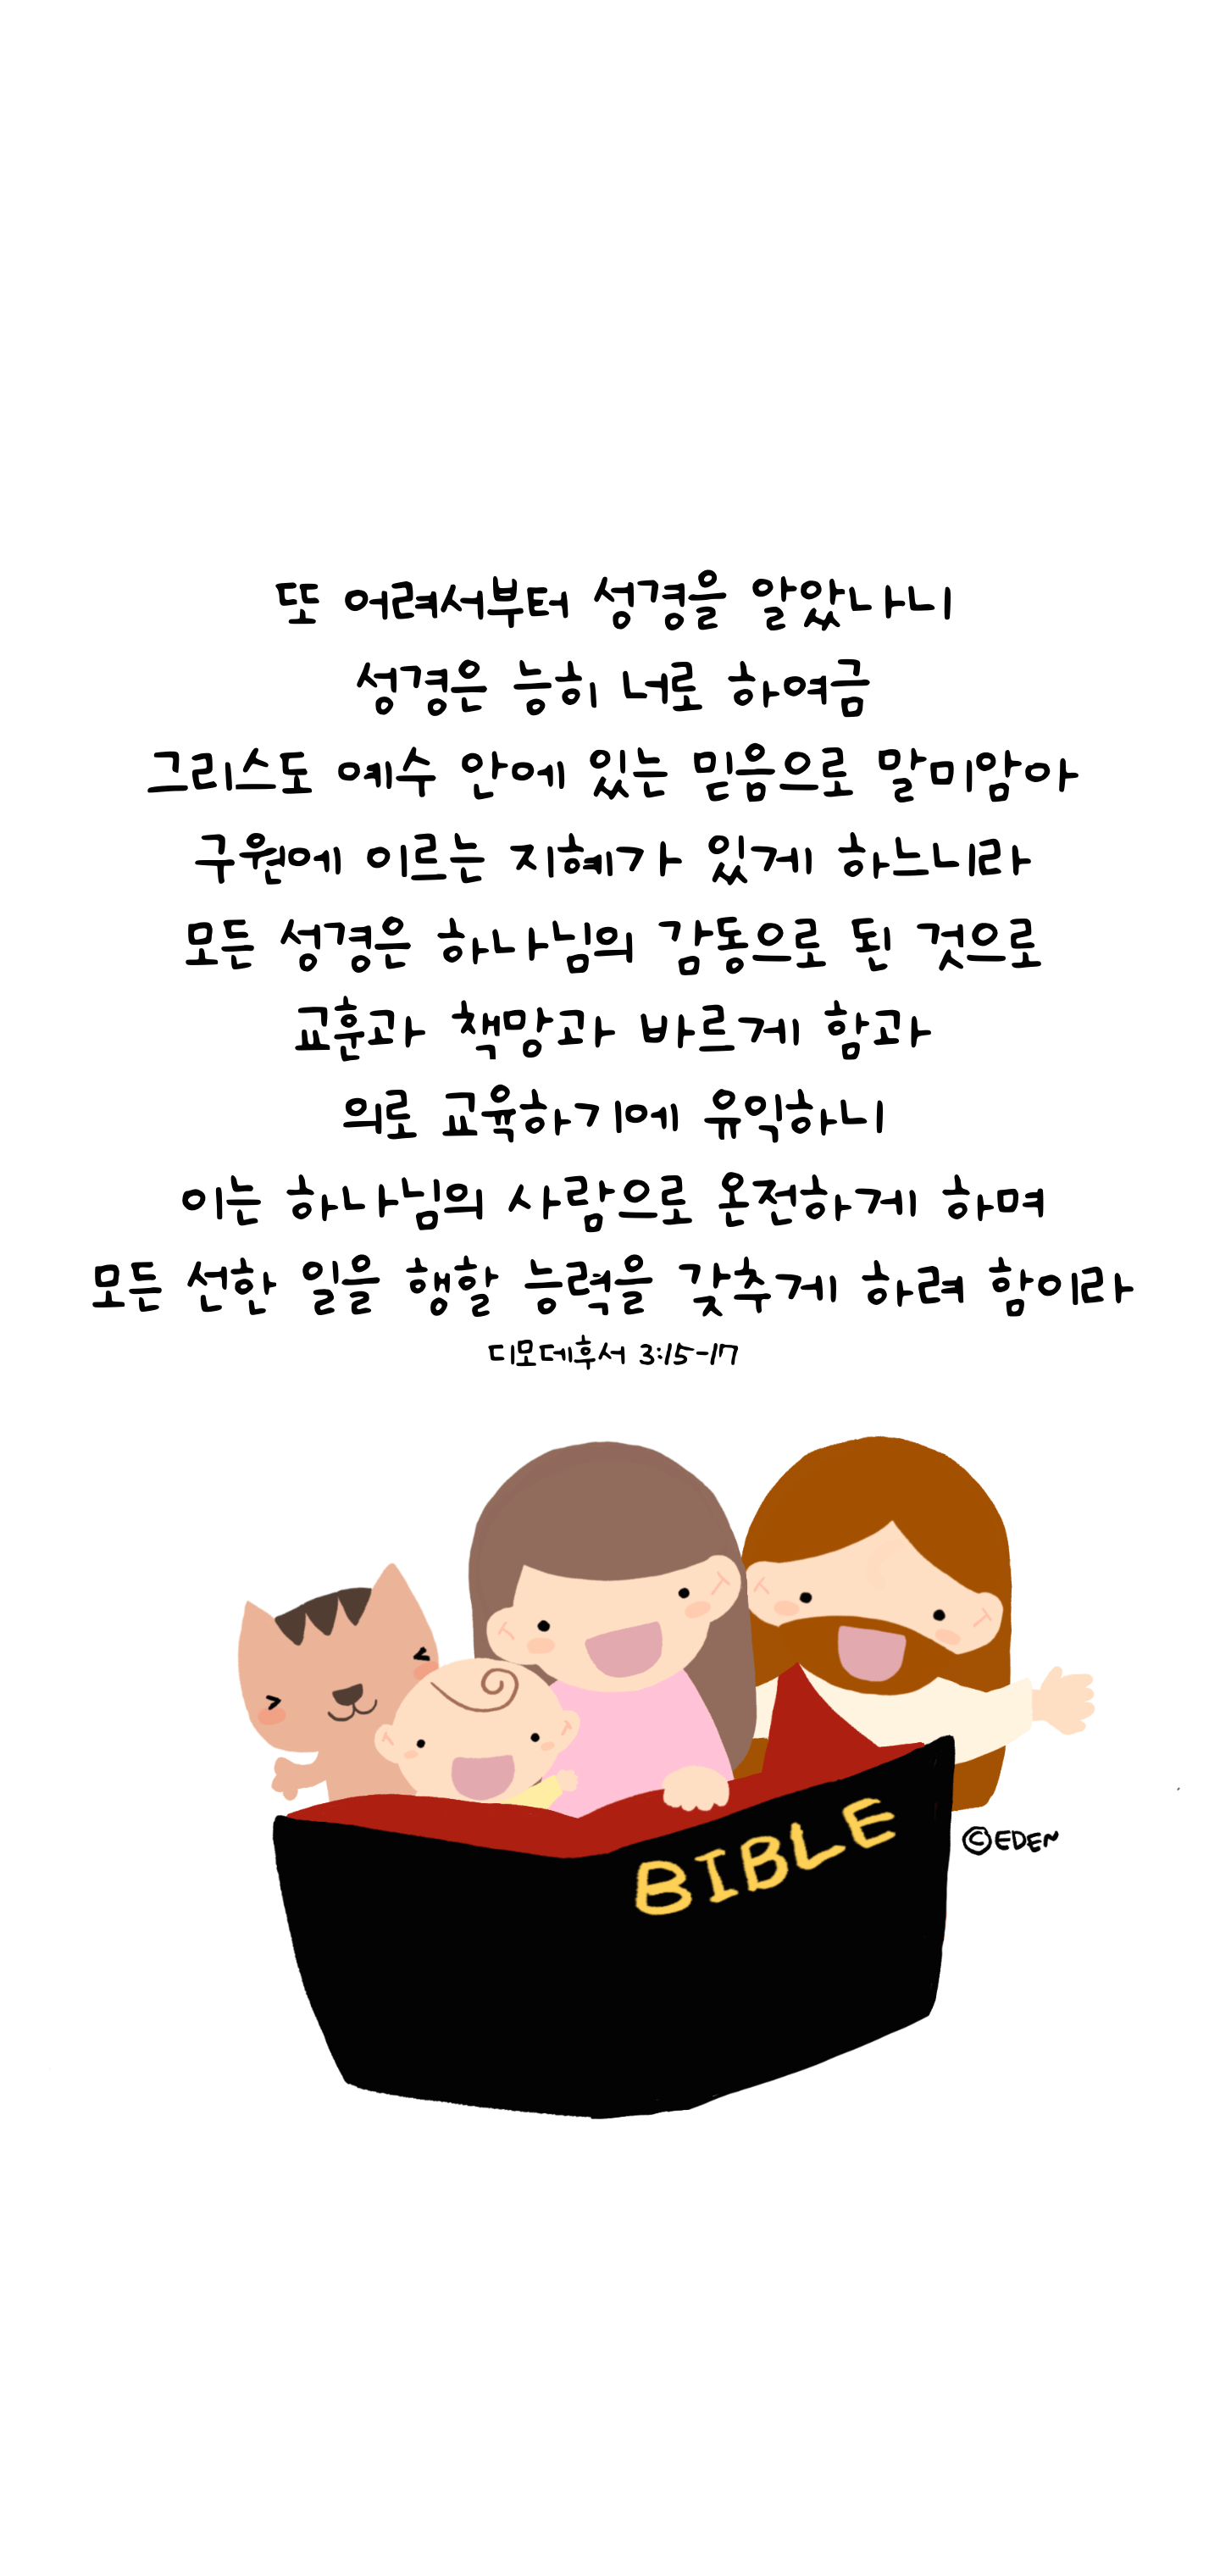 또 어려서부터 성경을 알았나니
성경은 능히 너로 하여금
그리스도 예수 안에 있는 믿음으로 말미암아
구원에 이르는 지혜가 있게 하느니라
모든 성경은 하나님의 감동으로 된 것으로
교훈과 책망과 바르게 함과
의로 교육하기에 유익하니
이는 하나님의 사람으로 온전하게 하며
모든 선한 일을 행할 능력을 갖추게 하려 함이라
디모데후서 3:15-17
BIBLE
©EDEN